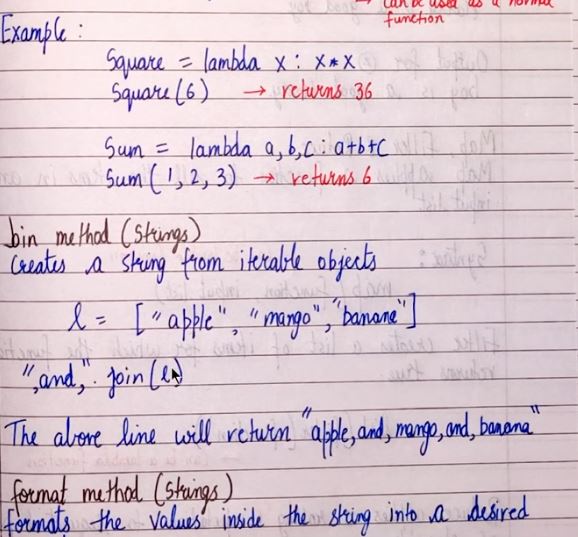 → can be used as a normal
function
Example :
Square = lambda x : x*x
Square (6) → returns 36
Sum = lambda a, b, c : a+b+c
Sum ( 1, 2, 3 ) → returns 6
join method (Strings)
Creates a string from iterable objects
l = [ "apple", "mango", "banana" ]
",and,". join (l)
The above line will return "apple,and, mango,and, banana"
format method (Strings)
formats the values inside the string into a desired